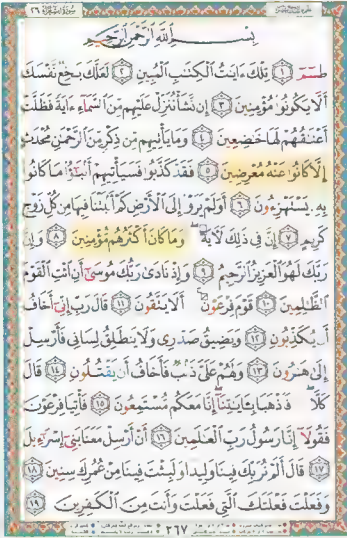 سورة الشعراء ٢٦
بِسْمِ ٱللَّهِ ٱلرَّحْمَٰنِ ٱلرَّحِيمِ
طسٓمٓ ١ تِلْكَ ءَايَٰتُ ٱلْكِتَٰبِ ٱلْمُبِينِ ٢ لَعَلَّكَ بَٰخِعٌ نَّفْسَكَ
أَلَّا يَكُونُوا۟ مُؤْمِنِينَ ٣ إِن نَّشَأْ نُنَزِّلْ عَلَيْهِم مِّنَ ٱلسَّمَآءِ ءَايَةً فَظَلَّتْ
أَعْنَٰقُهُمْ لَهَا خَٰضِعِينَ ٤ وَمَا يَأْتِيهِم مِّن ذِكْرٍ مِّنَ ٱلرَّحْمَٰنِ مُحْدَثٍ
إِلَّا كَانُوا۟ عَنْهُ مُعْرِضِينَ ٥ فَقَدْ كَذَّبُوا۟ فَسَيَأْتِيهِمْ أَنۢبَٰٓؤُا۟ مَا كَانُوا۟
بِهِۦ يَسْتَهْزِءُونَ ٦ أَوَلَمْ يَرَوْا۟ إِلَى ٱلْأَرْضِ كَمْ أَنۢبَتْنَا فِيهَا مِن كُلِّ زَوْجٍ
كَرِيمٍ ٧ إِنَّ فِى ذَٰلِكَ لَءَايَةً وَمَا كَانَ أَكْثَرُهُم مُّؤْمِنِينَ ٨ وَإِنَّ
رَبَّكَ لَهُوَ ٱلْعَزِيزُ ٱلرَّحِيمُ ٩ وَإِذْ نَادَىٰ رَبُّكَ مُوسَىٰٓ أَنِ ٱئْتِ ٱلْقَوْمَ
ٱلظَّٰلِمِينَ ١٠ قَوْمَ فِرْعَوْنَ أَلَا يَتَّقُونَ ١١ قَالَ رَبِّ إِنِّىٓ أَخَافُ
أَن يُكَذِّبُونِ ١٢ وَيَضِيقُ صَدْرِى وَلَا يَنطَلِقُ لِسَانِى فَأَرْسِلْ
إِلَىٰ هَٰرُونَ ١٣ وَلَهُمْ عَلَىَّ ذَنۢبٌ فَأَخَافُ أَن يَقْتُلُونِ ١٤ قَالَ
كَلَّا فَٱذْهَبَا بِـَٔايَٰتِنَآ إِنَّا مَعَكُم مُّسْتَمِعُونَ ١٥ فَأْتِيَا فِرْعَوْنَ
فَقُولَآ إِنَّا رَسُولُ رَبِّ ٱلْعَٰلَمِينَ ١٦ أَنْ أَرْسِلْ مَعَنَا بَنِىٓ إِسْرَٰٓءِيلَ
١٧ قَالَ أَلَمْ نُرَبِّكَ فِينَا وَلِيدًا وَلَبِثْتَ فِينَا مِنْ عُمُرِكَ سِنِينَ ١٨
وَفَعَلْتَ فَعْلَتَكَ ٱلَّتِى فَعَلْتَ وَأَنتَ مِنَ ٱلْكَٰفِرِينَ ١٩
٣٦٧